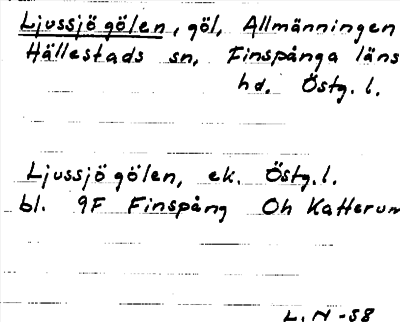 Ljussjögölen, göl, Allmänningen
Hällestads sn, Finspånga läns
hd. Östg. l.
Ljussjögölen, ek. Östg. l.
bl. 9F Finspång Oh Katterum
L. N -58